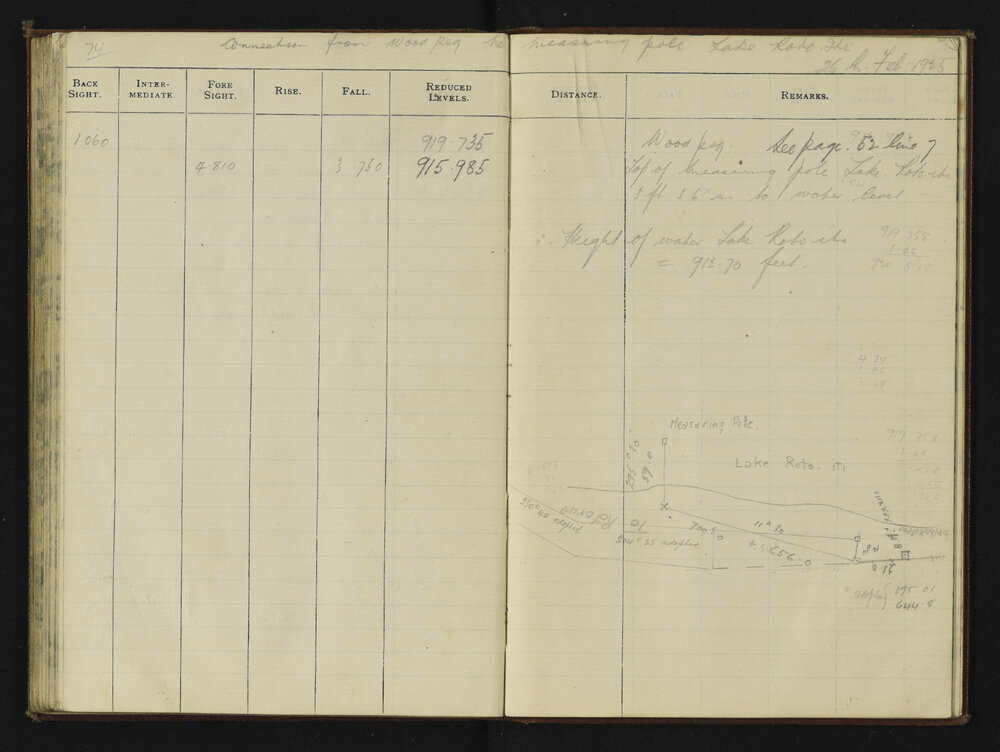 74
Connection from Wood peg to measuring pole Lake Roto-Iti
26th. Feb. 1925
BACK SIGHT. INTER-MEDIATE. FORE SIGHT. RISE. FALL. REDUCED LEVELS. DISTANCE. REMARKS.
1.060 919.735 Wood peg. See page. 52 line 7
4.810 3.750 915.985 Top of measuring pole Lake. Roto-iti
3 ft 3.6" ins to water level
∴ Height of water Lake Roto iti
= 912.70 feet.
919 758
1.06
4 74
1.06
3.68
Measuring Pole.
Lake Roto-iti
59.0
to Rotorua
11° 30
656.0
B.M.
adopted
195.01
644 8